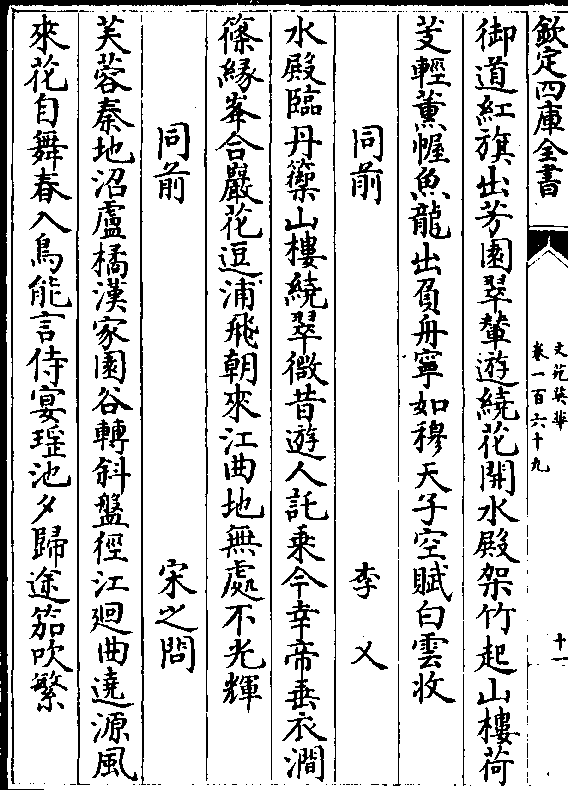 欽定四庫全書
文苑英華
卷一百六十九
十一
御道紅旗出芳園翠輦遊繞花開水殿架竹起山樓荷
芰輕薰幄魚龍出負舟寧如穆天子空賦白雲收
同前 李乂
水殿臨丹籞山樓繞翠微昔遊人託乗今幸帝垂衣澗
篠緣峯合巖花逗浦飛朝來江曲地無處不光輝
同前 宋之問
芙蓉秦地沼盧橘漢家園谷轉斜盤徑江廻曲遶源風
來花自舞春入鳥能言侍宴瑶池夕歸途笳吹繁